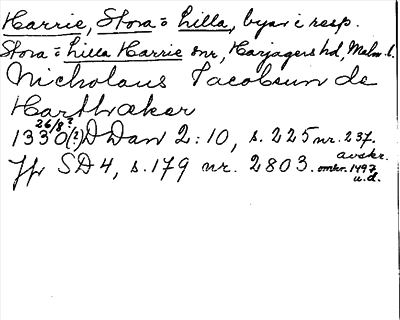 Harrie, Stora o Lilla, byar i resp.
Stora o Lilla Harrie snr, Harjagers hd, Malm. l.
Nicholaus Jacobsun de
Harthæker
26/8 ?
1330(?) D Dan 2:10, s. 225 nr. 237.
avskr.
Jfr SD 4, s. 179 nr. 2803. omkr. 1497
u.d.